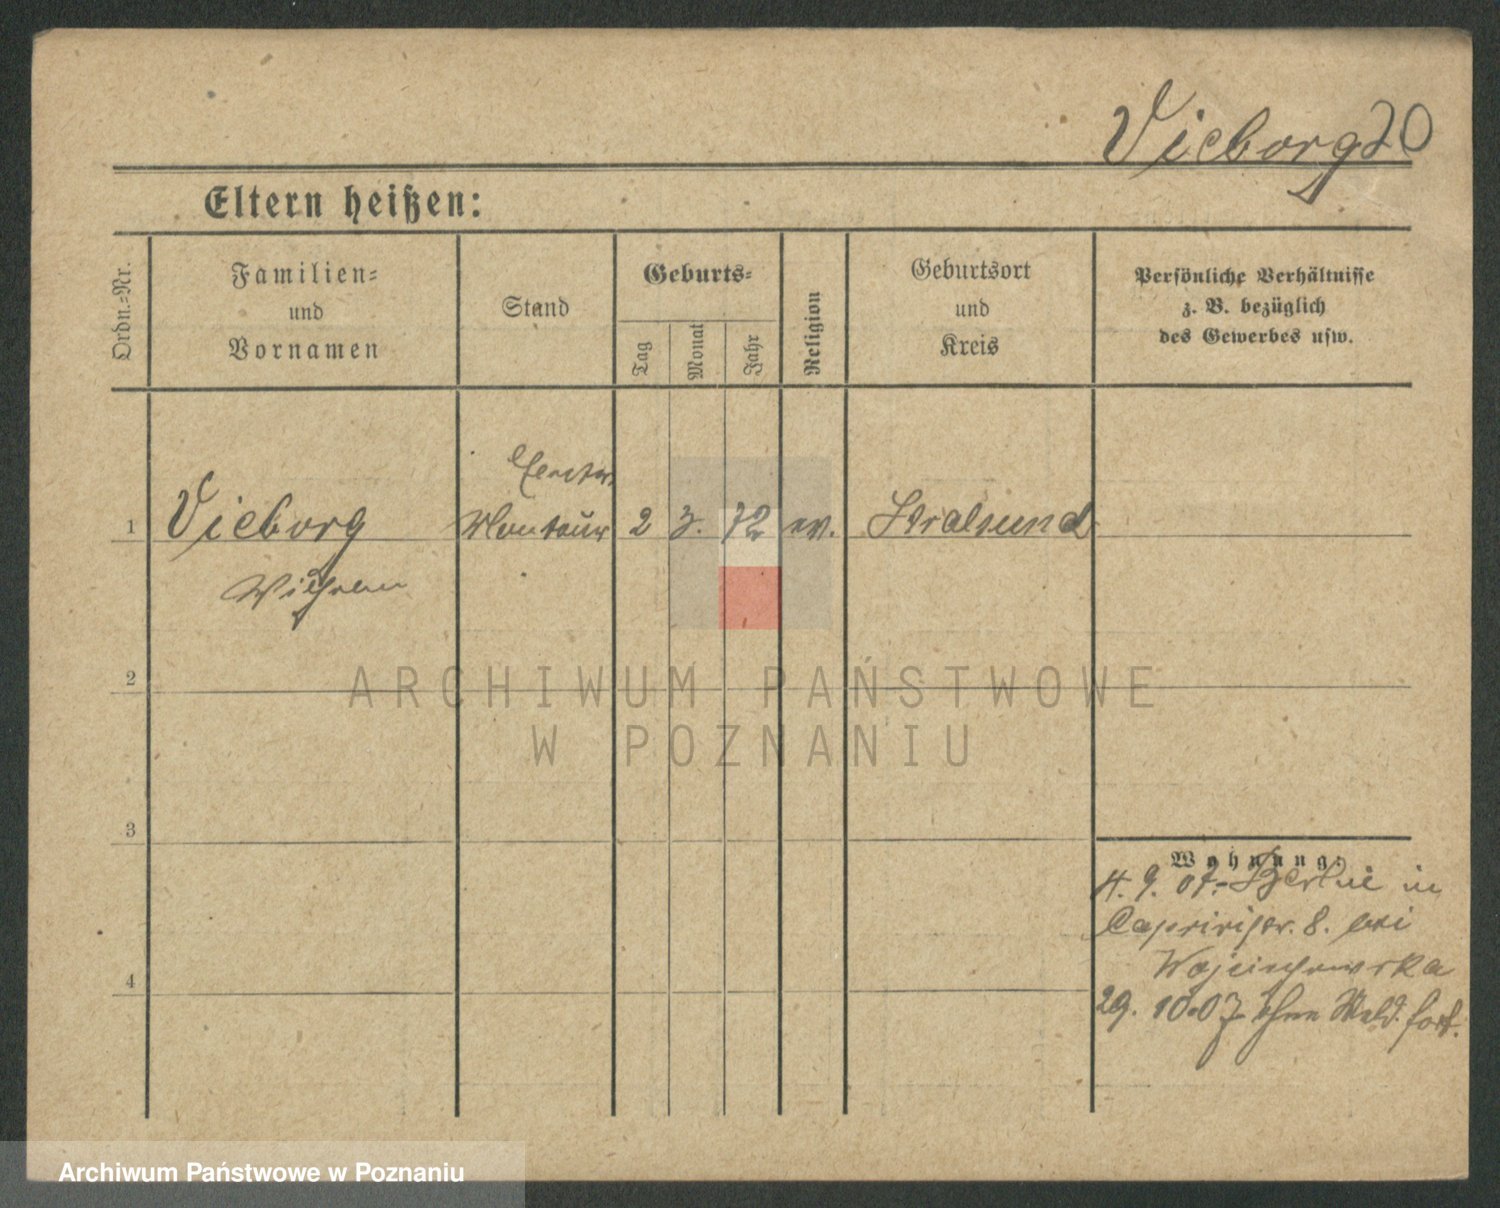 Vieborg 20
Eltern heißen:
Ordn.-Nr.
Familien-
und
Vornamen
Stand
Geburts-
Tag
Monat
Jahr
Religion
Geburtsort
und
Kreis
Persönliche Verhältnisse
z. B. bezüglich
des Gewerbes usw.
1 Vieborg Monteur 2 3. 72 ev. Stralsund
Wilhelm
2
ARCHIWUM PAŃSTWOWE
W POZNANIU
3
Wohnung:
4. 9. 07. Berlin in
8. bei
4
29. 10. 07 ohne Meld. fort.
Archiwum Państwowe w Poznaniu